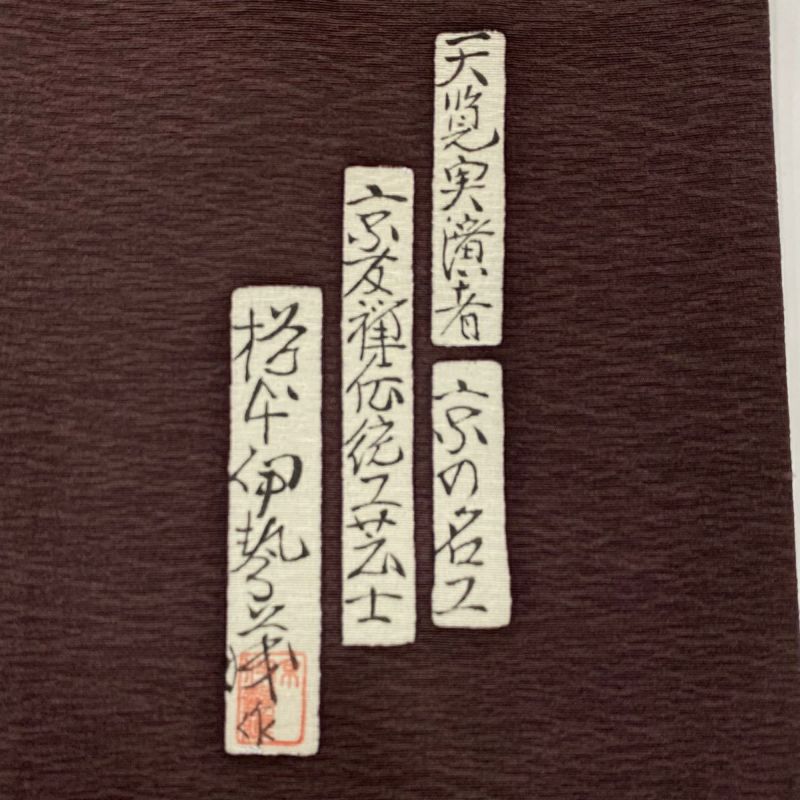 天覧実演者
京の名工
京友禅伝統工芸士
本伊勢之作